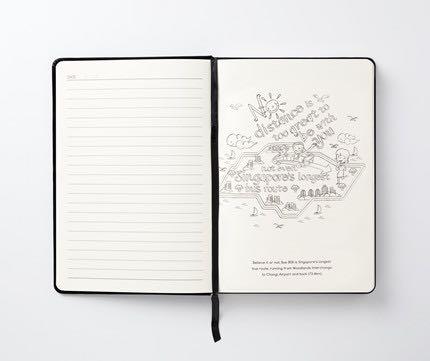 DATE:
No
distance is
too great to
be with
you
not even
Singapore's longest
bus route
Believe it or not, Bus 858 is Singapore's longest
bus route, running from Woodlands Interchange
to Changi Airport and back (73.4km).